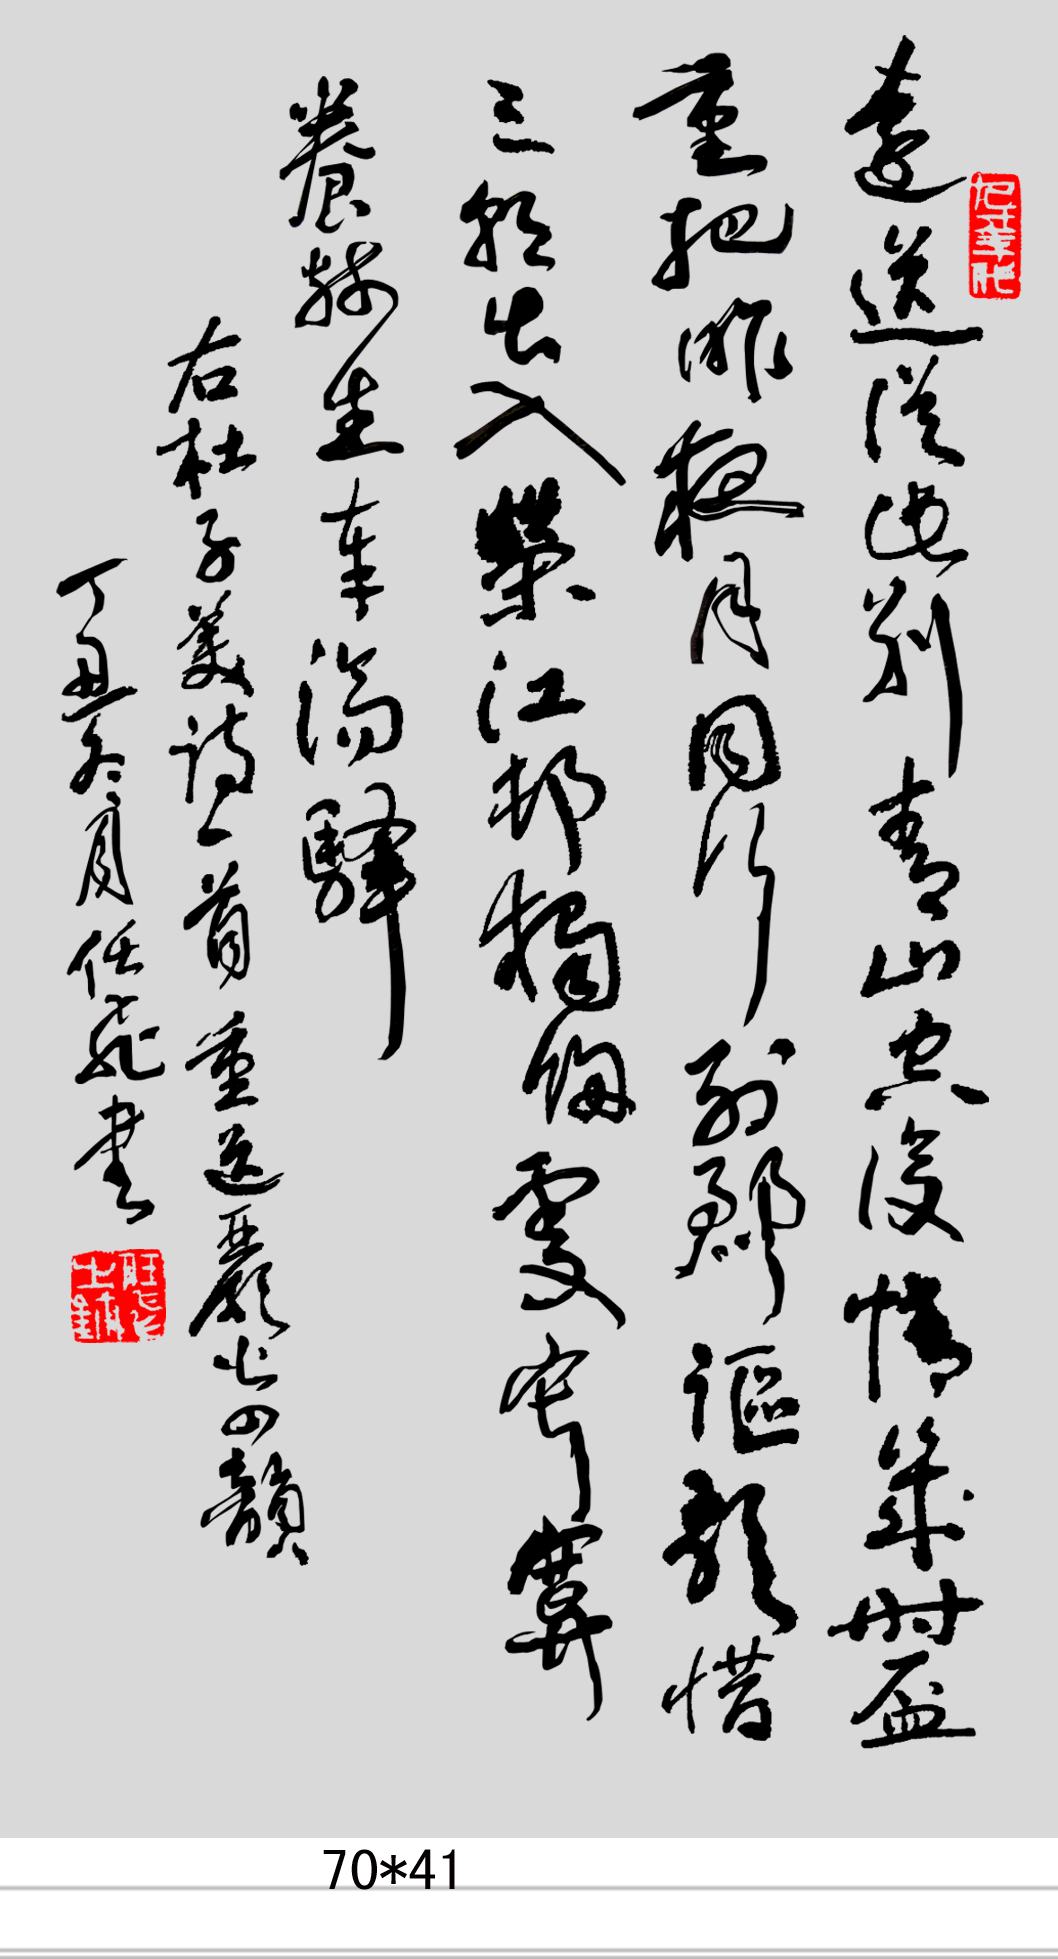 遠送從此別青山空復情幾時盃
重把昨夜月同行列郡謳歌惜
三朝出入榮江邨獨歸處寂寞
養殘生奉濟驛
右杜子美詩一首重送嚴公四韻
丁丑冬月任飛書
70*41